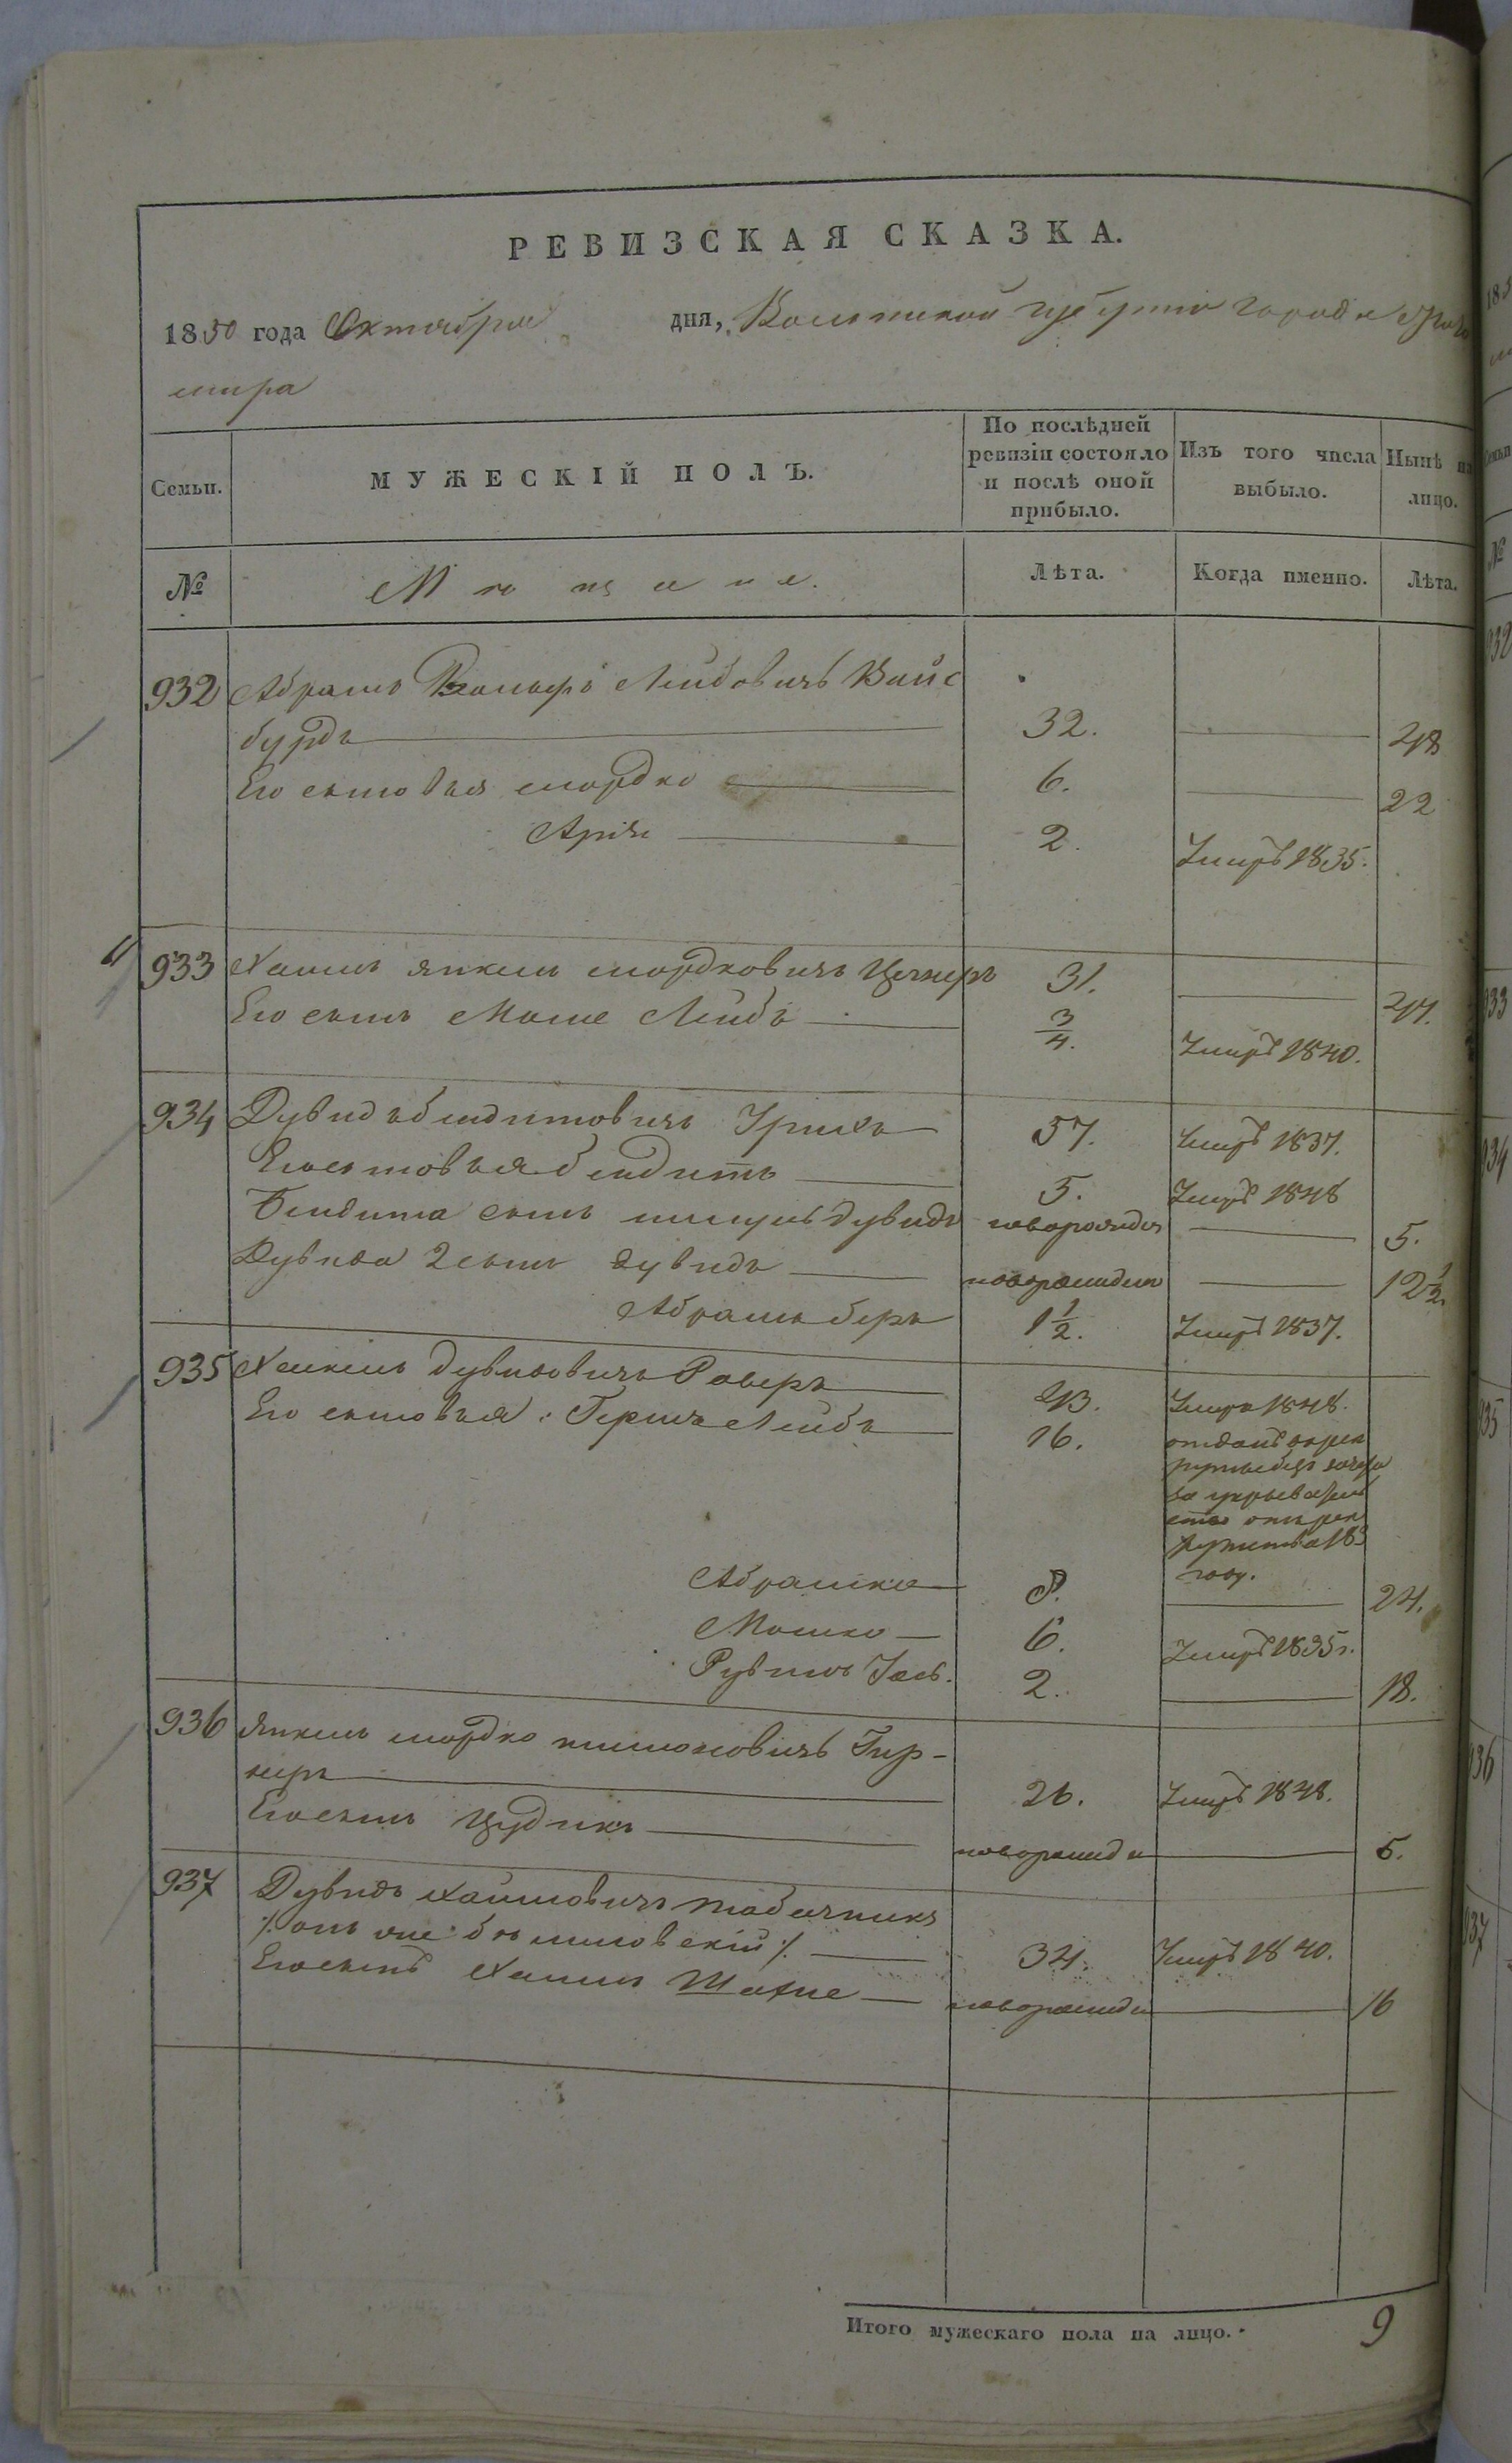 РЕВИЗСКАЯ СКАЗКА.
1850 года Октября дня, Волынской губернии города Жито
мира
Семьи.
МУЖЕСКІЙ ПОЛЪ.
По послѣдней ревизіи состояло и послѣ оной прибыло.
Изъ того числа выбыло.
Нынѣ на лицо.
№ Мѣщане. Лѣта. Когда именно. Лѣта.
932 Абрамъ Вольфъ Лейбовичъ Вайс
бурдъ 32. 48
Его сыновья Мордко 6. 22
Арія 2. Умеръ 1835.
933 Хаимъ Янкель Мордковичъ 31. 47.
Его сынъ Моше Лейбъ 3/4. Умеръ 1840.
934 Дувидъ Бендитовичъ 57. Умеръ 1837.
Его сыновья Бендитъ 5. Умеръ 1848
Бендита сынъ Дувидъ новорожден 5.
Дувида 2 сынъ Дувидъ новорожден 12 1/2.
Абрамъ Беръ 1 1/2. Умеръ 1837.
935 Хаскель Дувидовичъ 43. Умеръ 1848.
Его сыновья: Гершъ Лейбъ 16. отданъ в рек
руты безъ зачета
за укрыватель
ство отъ рек
рутства 183
году.
Абрамко 8. 24.
Мошко 6. Умеръ 1835г.
Рувинъ 2. 18.
936 Янкель Мордко
неръ 26. Умеръ 1848.
Его сынъ Цудикъ новорожден 5.
937 Дувидъ Хаимовичъ Табачникъ
/: онъ же :/ 34. Умеръ 1840.
Его сынъ Хаимъ новорожден 16
Итого мужескаго пола на лицо. 9